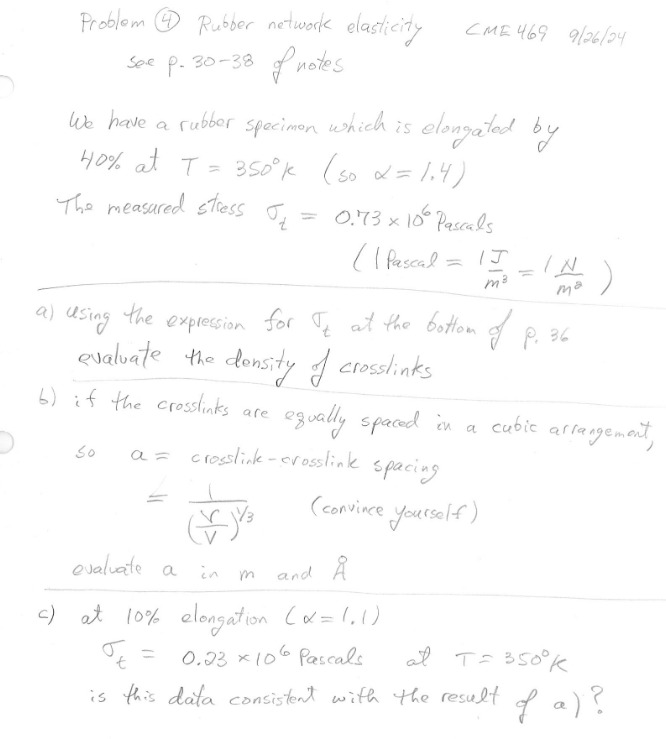 Problem ④ Rubber network elasticity CME 469 9/26/24
see p. 30-38 of notes
We have a rubber specimen which is elongated by
40% at T = 350°K (so α = 1.4)
The measured stress σₜ = 0.73 × 10⁶ Pascals
(1 Pascal = 1 J/m³ = 1 N/m²)
a) using the expression for σₜ at the bottom of p. 36
evaluate the density of crosslinks
b) if the crosslinks are equally spaced in a cubic arrangement,
so a = crosslink-crosslink spacing
= 1/(r/V)^1/3 (convince yourself)
evaluate a in m and Å
c) at 10% elongation (α = 1.1)
σₜ = 0.23 × 10⁶ Pascals at T = 350°K
is this data consistent with the result of a)?